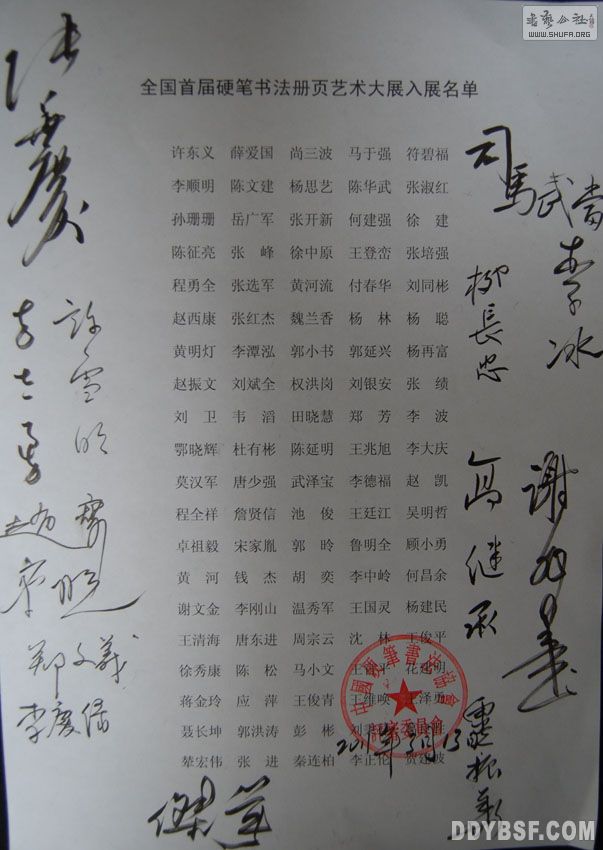 书艺公社
WWW.SHUFA.ORG
全国首届硬笔书法册页艺术大展入展名单
许东义 薛爱国 尚三波 马于强 符碧福
李顺明 陈文建 杨思艺 陈华武 张淑红
孙珊珊 岳广军 张开新 何建强 徐建
陈征亮 张峰 徐中原 王登峦 张培强
程勇全 张选军 黄河流 付春华 刘同彬
赵西康 张红杰 魏兰香 杨林 杨聪
黄明灯 李潭泓 郭小书 郭延兴 杨再富
赵振文 刘斌全 权洪岗 刘银安 张绩
刘卫 韦滔 田晓慧 郑芳 李波
鄂晓辉 杜有彬 陈延明 王兆旭 李大庆
莫汉军 唐少强 武泽宝 李德福 赵凯
程全祥 詹贤信 池俊 王廷江 吴明哲
卓祖毅 宋家胤 郭昤 鲁明全 顾小勇
黄河 钱杰 胡奕 李中岭 何昌余
谢文金 李刚山 温秀军 王国灵 杨建民
王清海 唐东进 周宗云 沈林 王俊平
徐秀康 陈松 马小文 花建明
蒋金玲 应萍 王俊青 王维唤 王泽勇
聂长坤 郭洪涛 彭彬
辇宏伟 张进 秦连柏 李正伦 贺建波
中國硬筆書法協會
評審委員會
张垂庆
许雪明
李士勇
郑文義
李庆保
司馬武當
李冰
柳長忠
高继承
DDYBSF.COM